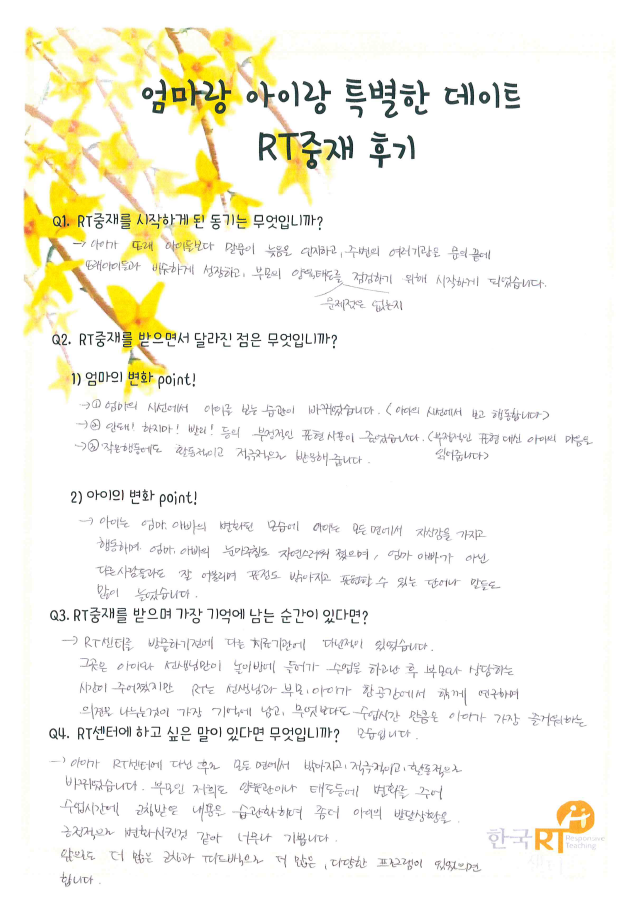 엄마랑 아이랑 특별한 데이트
RT중재 후기
Q1. RT중재를 시작하게 된 동기는 무엇입니까?
→ 아이가 또래 아이들보다 말문이 늦음을 인지하고, 주변의 여러기관을 음의 끝에
또래아이들과 비슷하게 성장하고, 부모의 양육태도를 점검하기 위해 시작하게 되었습니다.
문제점은 없는지
Q2. RT중재를 받으면서 달라진 점은 무엇입니까?
1) 엄마의 변화 point!
→① 엄마의 시선에서 아이를 보는 습관이 바뀌었습니다. <아이의 시선에서 보고 행동합니다>
→② 안돼! 하지마! 반의! 등의 부정적인 표현 사용이 줄었습니다. <부정적인 표현 대신 아이의 마음을
읽어줍니다>
→③ 작은행동에도 활동적이고 적극적으로 반응해줍니다.
2) 아이의 변화 point!
→ 아이는 엄마. 아빠의 변화된 모습에 아이는 모든 면에서 자신감을 가지고
행동하며 엄마. 아빠와 눈마주침도 자연스러워 졌으며, 엄마 아빠가 아닌
다른사람들과도 잘 어울리며 표정도 밝아지고 표현할 수 있는 단어나 말들도
많이 늘었습니다.
Q3. RT중재를 받으며 가장 기억에 남는 순간이 있다면?
→ RT센터를 방문하기전에 다른 치료기관에 다닌적이 있었습니다.
그곳은 아이와 선생님만이 놀이방에 들어가 수업을 하고난 후 부모와 상담하는
시간이 주어졌지만 RT는 선생님과 부모, 아이가 한공간에서 함께 연구하며
의견을 나누는것이 가장 기억에 남고, 무엇보다도 수업시간 만큼은 아이가 가장 즐거워하는
모습입니다.
Q4. RT센터에 하고 싶은 말이 있다면 무엇입니까?
→ 아이가 RT센터에 다닌 후로 모든 면에서 밝아지고, 적극적이고, 활동적으로
바뀌었습니다. 부모인 저희도 양육관이나 태도등에 변화를 주어
수업시간에 코칭받은 내용은 습관화하며 좀더 아이의 발달상황을
긍정적으로 변화시킨것 같아 너무나 기쁩니다.
앞으로도 더 많은 코칭과 피드백으로 더 많은, 다양한 프로그램이 있었으면
합니다.
한국RT Responsive
Teaching